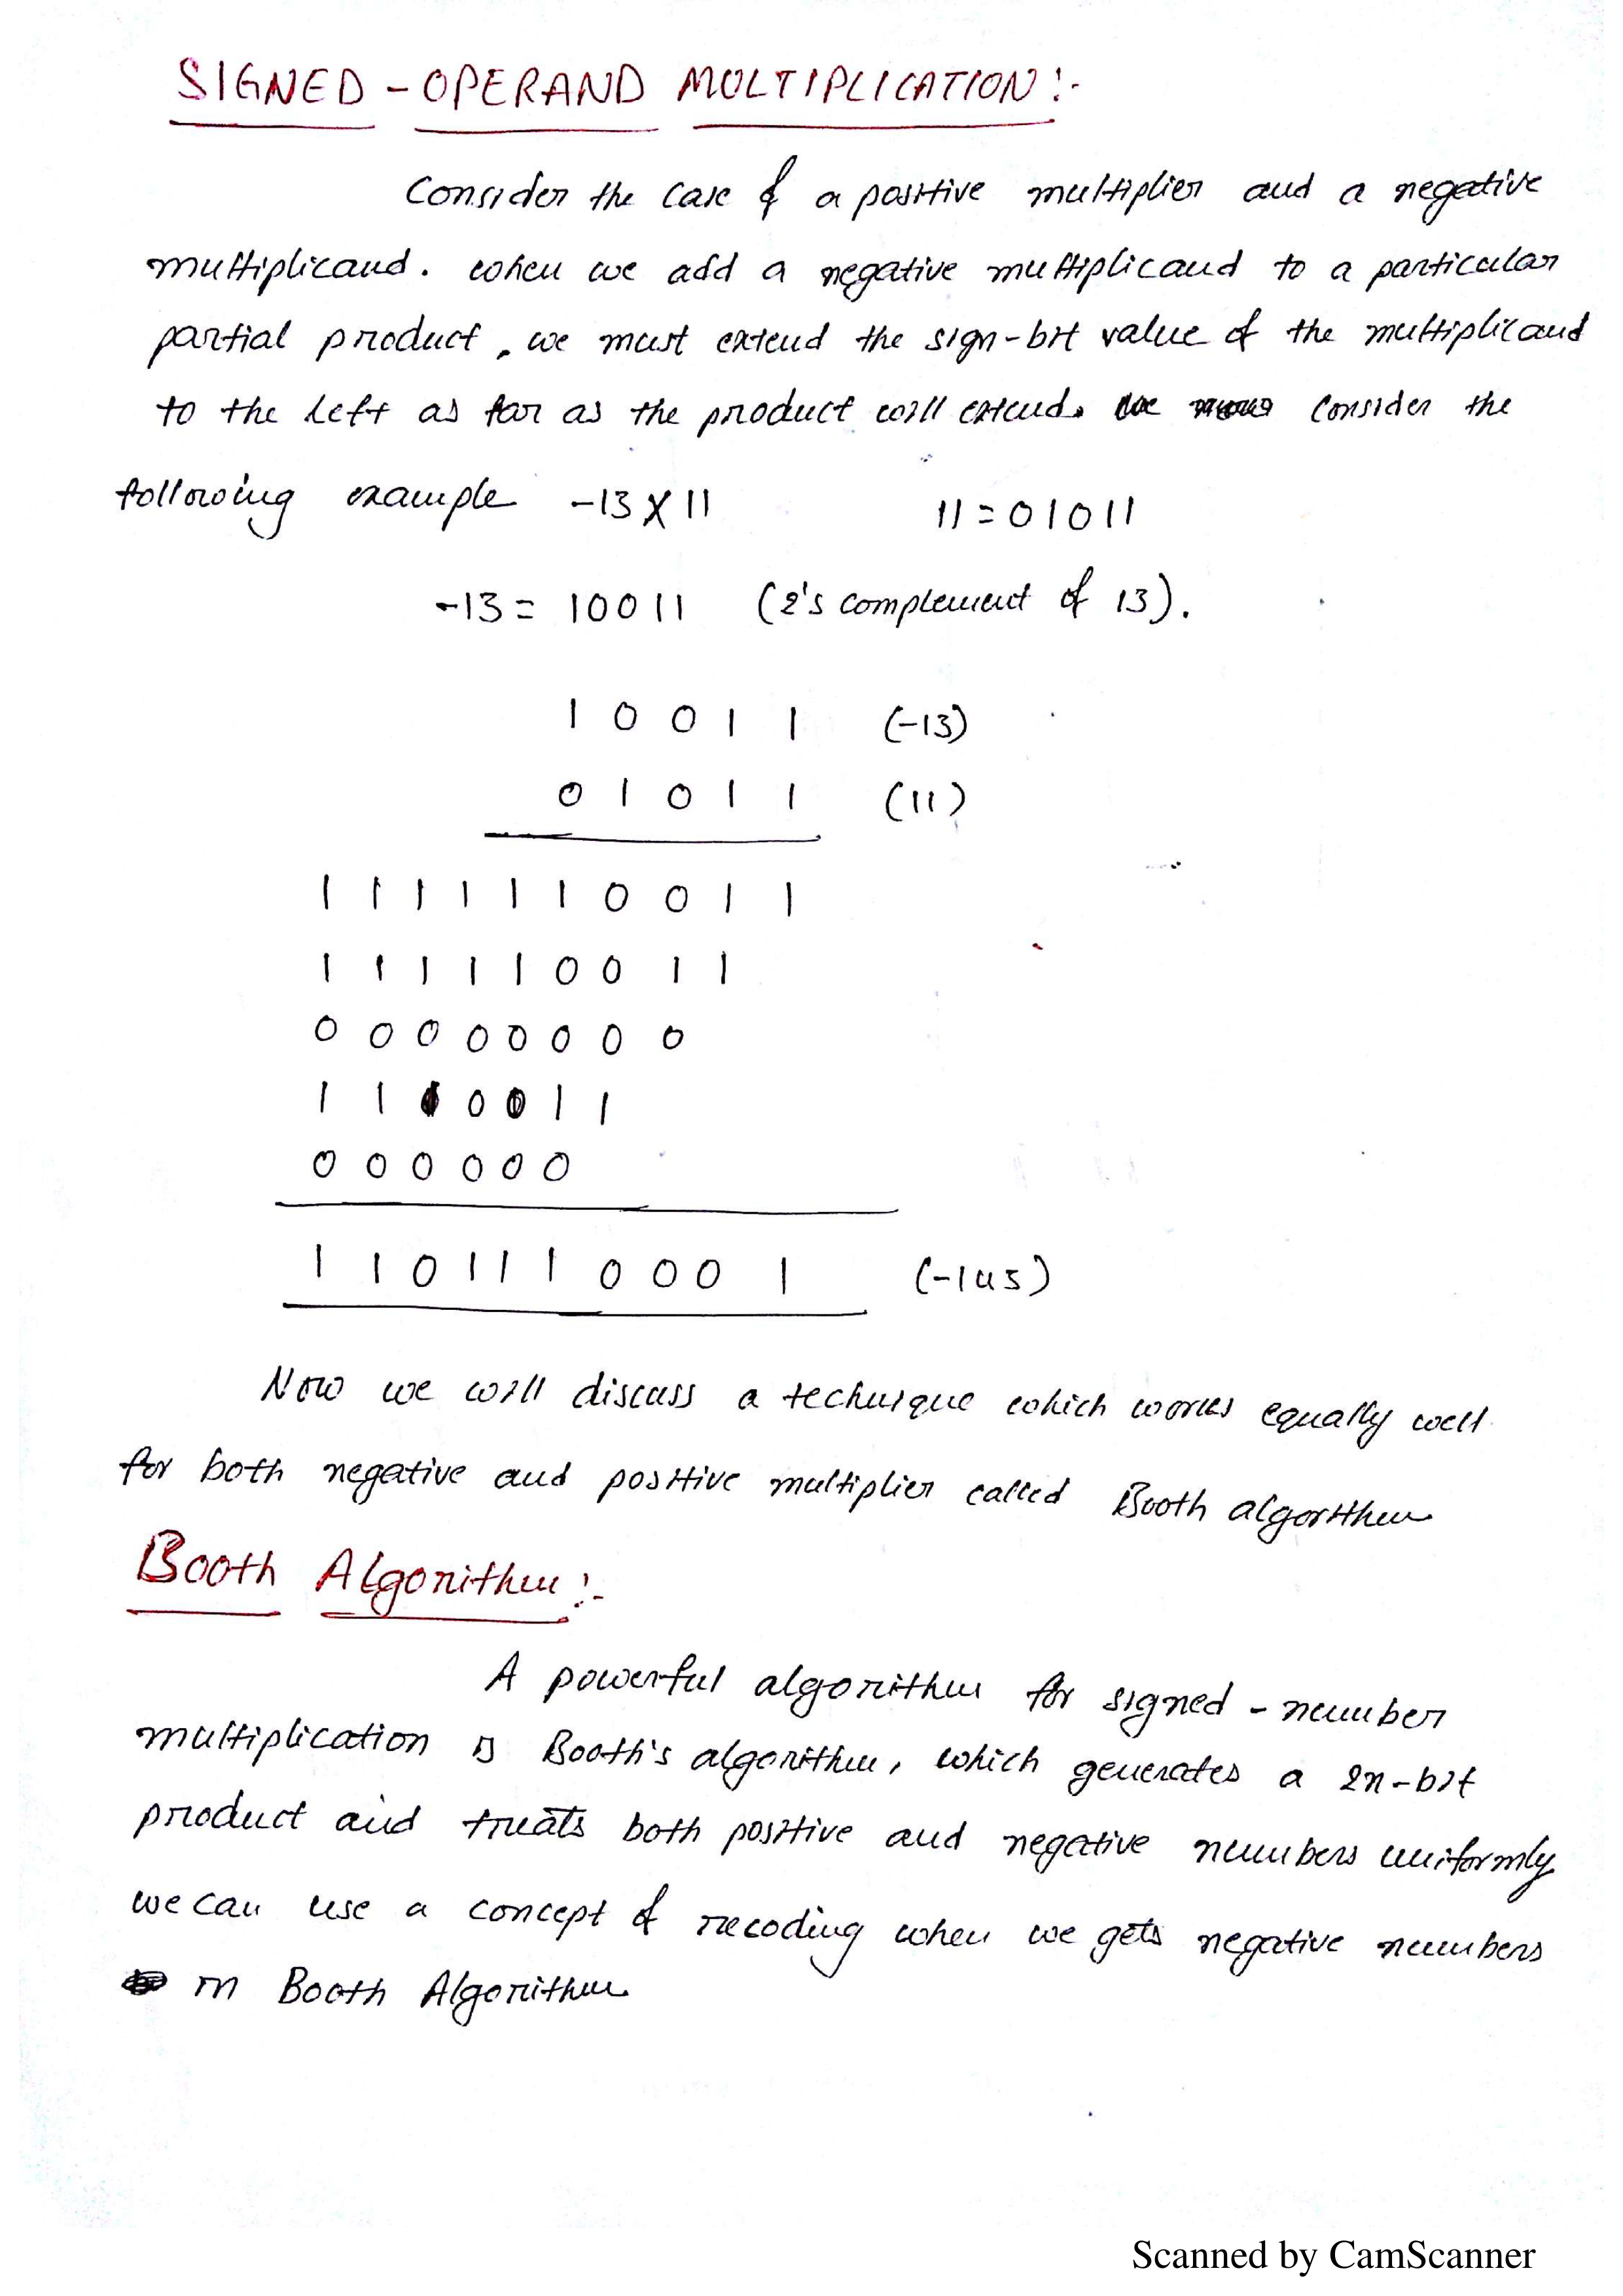 SIGNED - OPERAND MULTIPLICATION :-
Consider the case of a positive multiplier and a negative
multiplicand. when we add a negative multiplicand to a particular
partial product, we must extend the sign-bit value of the multiplicand
to the left as far as the product will extend. Consider the
following example -13 X 11 11 = 01011
-13 = 10011 (2's complement of 13).
1 0 0 1 1 (-13)
0 1 0 1 1 (11)
1 1 1 1 1 1 0 0 1 1
1 1 1 1 1 0 0 1 1
0 0 0 0 0 0 0 0
1 1 1 0 0 1 1
0 0 0 0 0 0
1 1 0 1 1 1 0 0 0 1 (-143)
Now we will discuss a technique which works equally well
for both negative and positive multiplier called Booth algorithm
Booth Algorithm :-
A powerful algorithm for signed - number
multiplication is Booth's algorithm, which generates a 2n-bit
product and treats both positive and negative numbers uniformly
we can use a concept of recoding when we gets negative numbers
in Booth Algorithm
Scanned by CamScanner